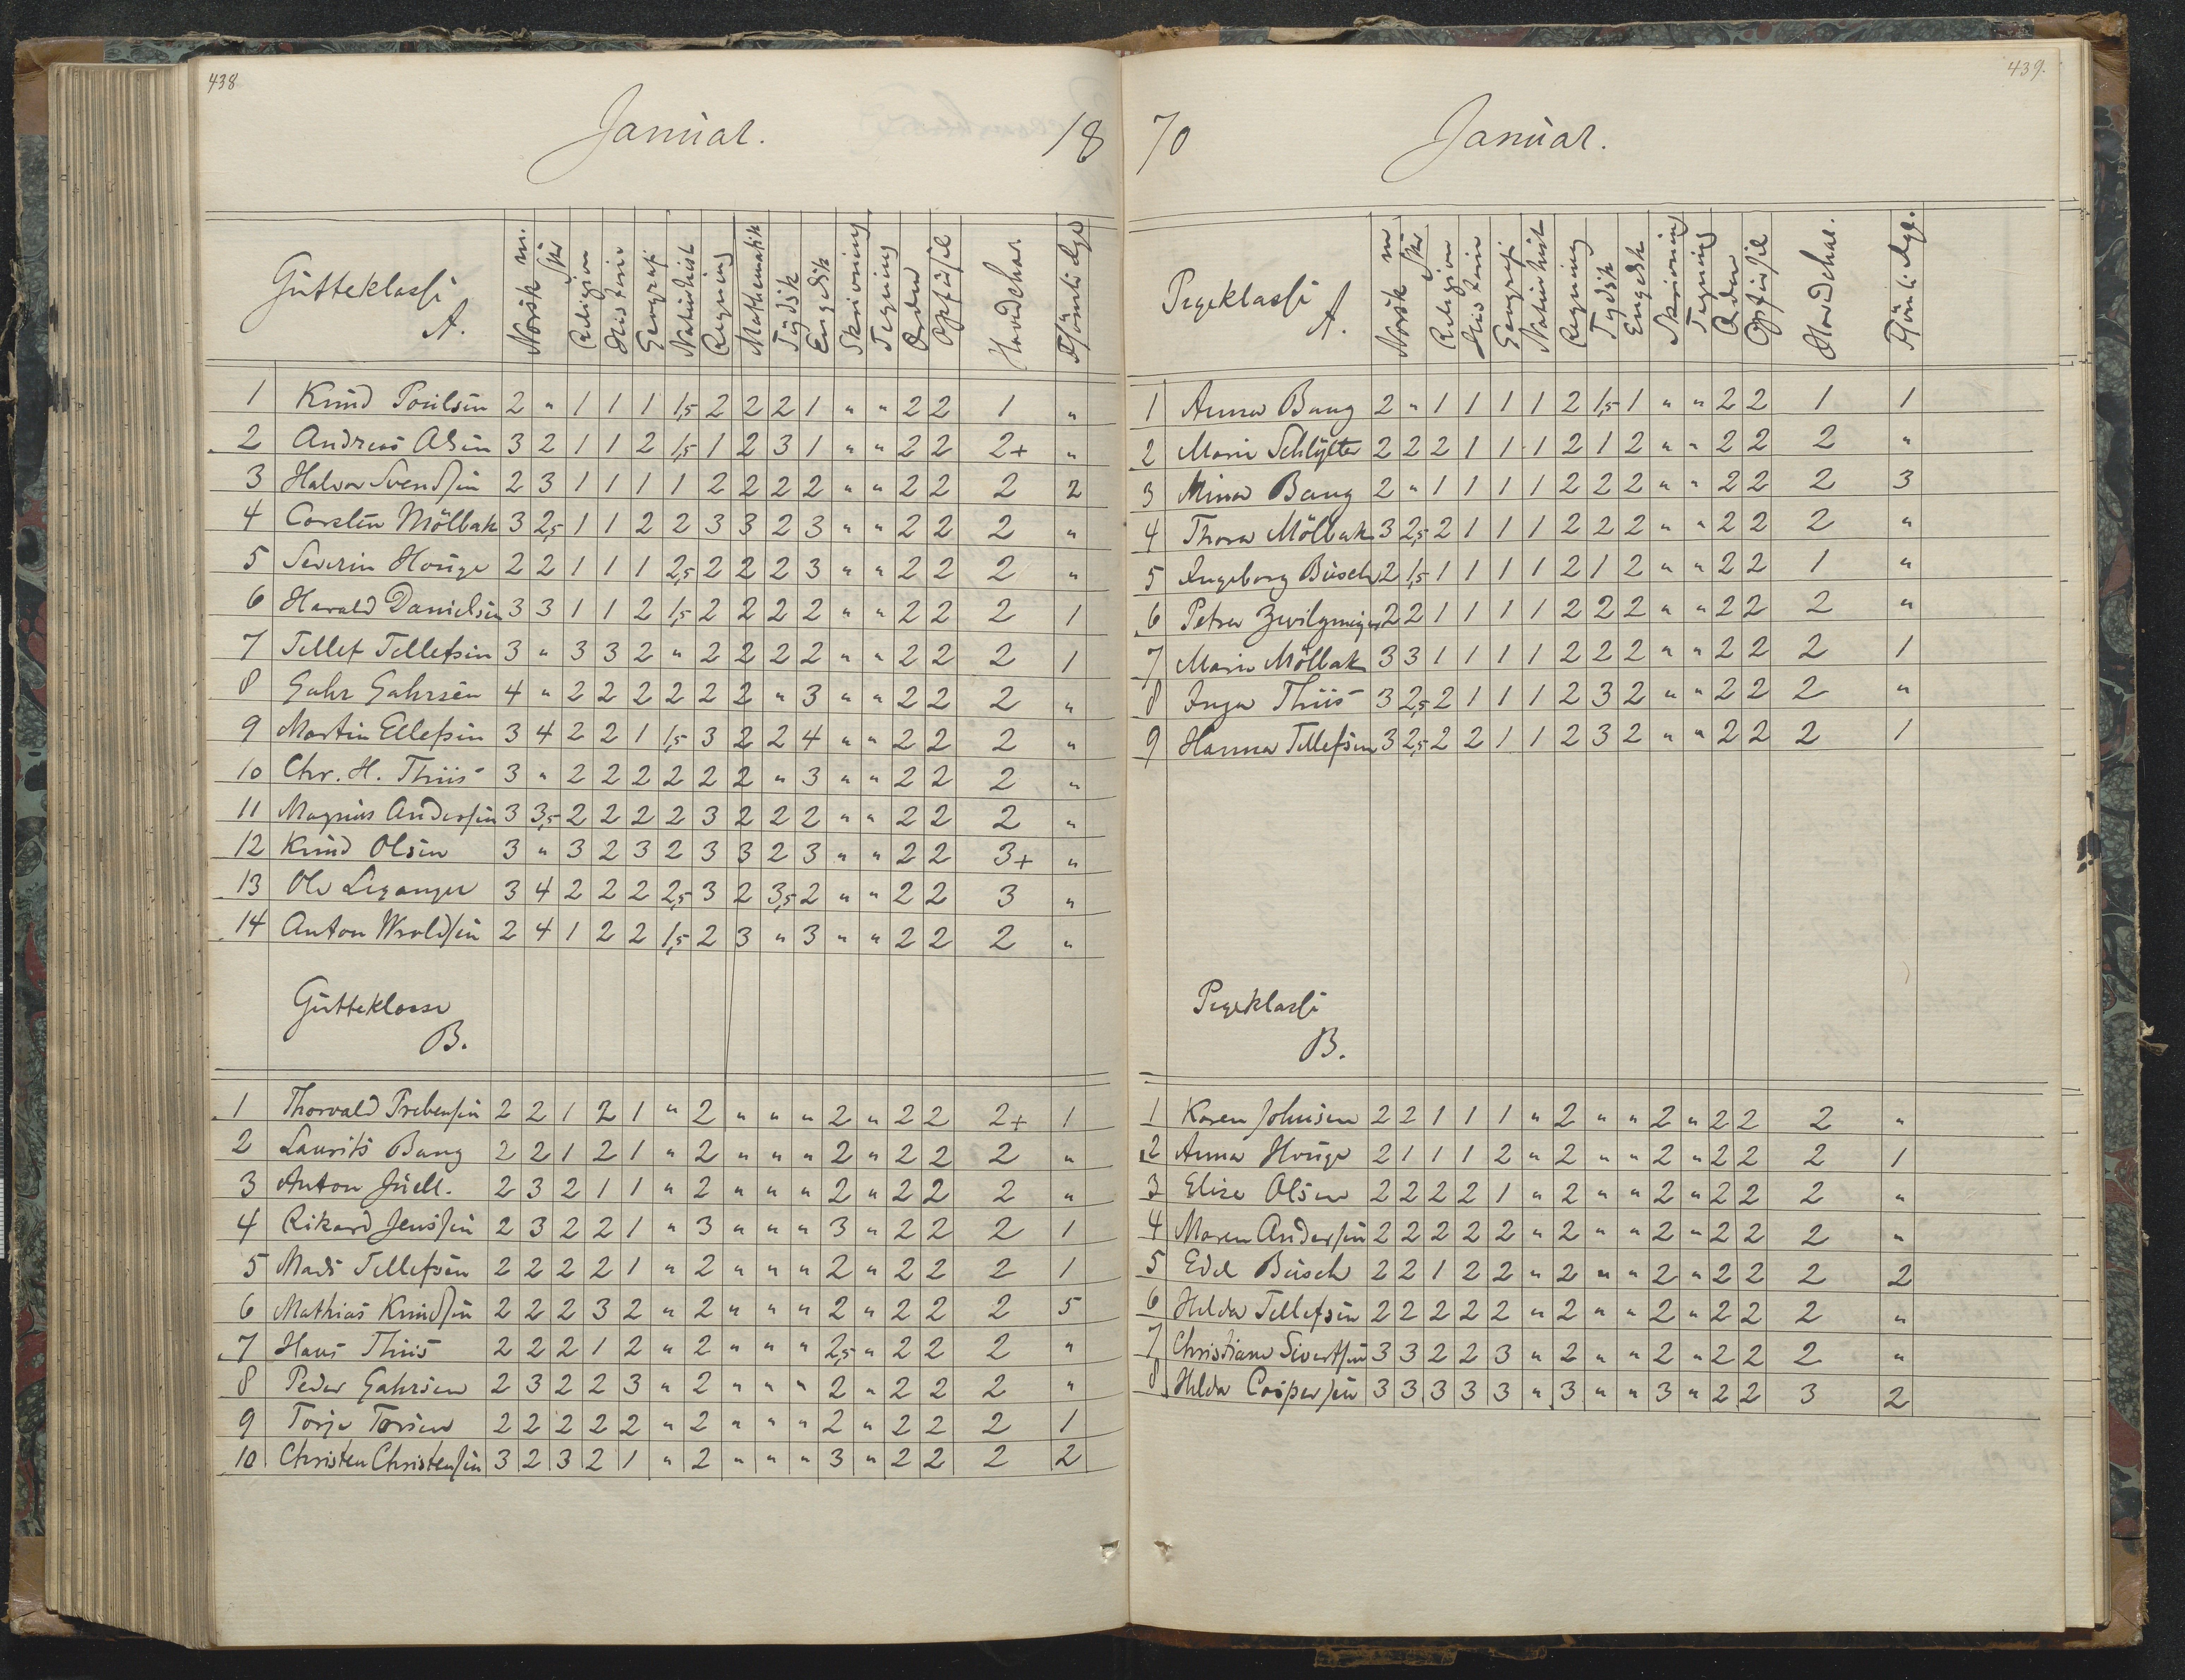 438
Januar. 18
Gutteklasse A. Norsk m. skr Religion Historie Geografi Naturhist Regning Mathematik Tydsk Engelsk Skrivning Tegning Orden Opførsel Hovedchar Forsømte Dge
1 Knud Poulsen 2 " 1 1 1 1,5 2 2 2 1 " " 2 2 1 "
2 Andreas Olsen 3 2 1 1 2 1,5 1 2 3 1 " " 2 2 2+ "
3 Halvor Svendsen 2 3 1 1 1 1 2 2 2 2 " " 2 2 2 2
4 Carsten Mölbak 3 2,5 1 1 2 2 3 3 2 3 " " 2 2 2 "
5 Severin Houge 2 2 1 1 1 2,5 2 2 2 3 " " 2 2 2 "
6 Harald Danielsen 3 3 1 1 2 1,5 2 2 2 2 " " 2 2 2 1
7 Tellef Tellefsen 3 " 3 3 2 " 2 2 2 2 " " 2 2 2 1
8 Gahr Gahrsen 4 " 2 2 2 2 2 2 " 3 " " 2 2 2 "
9 Martin Ellefsen 3 4 2 2 1 1,5 3 2 2 4 " " 2 2 2 "
10 Chr. H. Thiis 3 " 2 2 2 2 2 2 " 3 " " 2 2 2 "
11 Magnus Andersen 3 3,5 2 2 2 2 3 2 2 2 " " 2 2 2 "
12 Knud Olsen 3 " 3 2 3 2 3 3 2 3 " " 2 2 3+ "
13 Ole Leganger 3 4 2 2 2 2,5 3 2 3,5 2 " " 2 2 3 "
14 Anton Wroldsen 2 4 1 2 2 1,5 2 3 " 3 " " 2 2 2 "
Gutteklasse
B.
1 Thorvald Prebensen 2 2 1 2 1 " 2 " " " 2 " 2 2 2+ 1
2 Laurits Bang 2 2 1 2 1 " 2 " " " 2 " 2 2 2 "
3 Anton Juell. 2 3 2 1 1 " 2 " " " 2 " 2 2 2 "
4 Rikard Jenssen 2 3 2 2 1 " 3 " " " 3 " 2 2 2 1
5 Mads Tellefsen 2 2 2 2 1 " 2 " " " 2 " 2 2 2 1
6 Mathias Knudsen 2 2 2 3 2 " 2 " " " 2 " 2 2 2 5
7 Hans Thiis 2 2 2 1 2 " 2 " " " 2,5 " 2 2 2 "
8 Peder Gahrsen 2 3 2 2 3 " 2 " " " 2 " 2 2 2 "
9 Torje Torsen 2 2 2 2 2 " 2 " " " 2 " 2 2 2 1
10 Christen Christensen 3 2 3 2 1 " 2 " " " 3 " 2 2 2 2
439.
70 Januar.
Pigeklasse A. Norsk m skr Religion Historie Geografi Naturhist Regning Tydsk Engelsk Skrivning Tegning Orden Opførsel Hovedchar. Forsømte Dge.
1 Anna Bang 2 " 1 1 1 1 2 1,5 1 " " 2 2 1 1
2 Marie Schlytter 2 2 2 1 1 1 2 1 2 " " 2 2 2 "
3 Mina Bang 2 " 1 1 1 1 2 2 2 " " 2 2 2 3
4 Thora Mölbak 3 2,5 2 1 1 1 2 2 2 " " 2 2 2 "
5 Ingeborg Busch 2 1,5 1 1 1 1 2 1 2 " " 2 2 1 "
6 Petra Zwilgmeyer 2 2 1 1 1 1 2 2 2 " " 2 2 2 "
7 Marie Möllbak 3 3 1 1 1 1 2 2 2 " " 2 2 2 1
8 Inga Thiis 3 2,5 2 1 1 1 2 3 2 " " 2 2 2 "
9 Hanna Tellefsen 3 2,5 2 2 1 1 2 3 2 " " 2 2 2 1
Pigeklasse
B.
1 Karen Johnsen 2 2 1 1 1 " 2 " " 2 " 2 2 2 "
2 Anna Houge 2 1 1 1 2 " 2 " " 2 " 2 2 2 1
3 Elise Olsen 2 2 2 2 1 " 2 " " 2 " 2 2 2 "
4 Maren Andersen 2 2 2 2 2 " 2 " " 2 " 2 2 2 "
5 Edel Busch 2 2 1 2 2 " 2 " " 2 " 2 2 2 2
6 Hilda Tellefsen 2 2 2 2 2 " 2 " " 2 " 2 2 2 "
7 Christiane Sivertsen 3 3 2 2 3 " 2 " " 2 " 2 2 2 "
8 Hilda Caspersen 3 3 3 3 3 " 3 " " 3 " 2 2 3 2